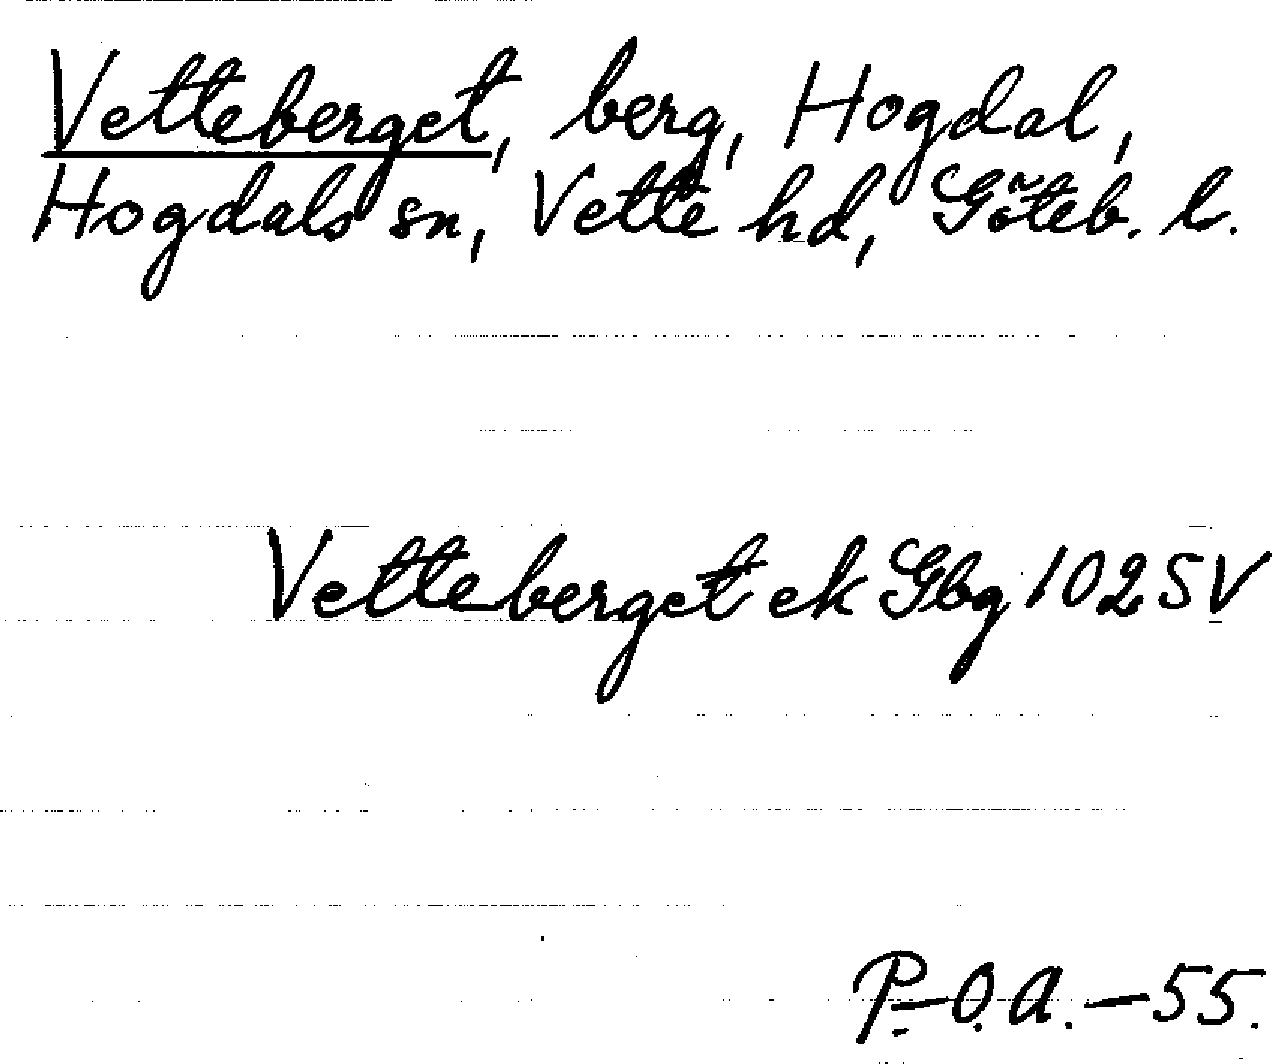 Vetteberget, berg, Hogdal,
Hogdals sn, Vette hd, Göteb. l.
Vetteberget ek Gbg 1025V
P.-O.A.-55.